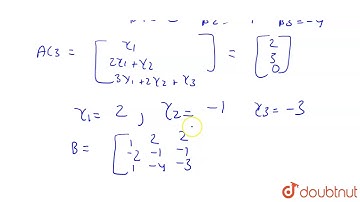 AC3 = [ x1 2x1 + x2 3x1 + 2x2 + x3 ] = [ 2 3 0 ]
x1 = 2 , x2 = -1 x3 = -3
B = [ 1 2 2
-2 -1 -1
1 -4 -3 ]
doubtnut